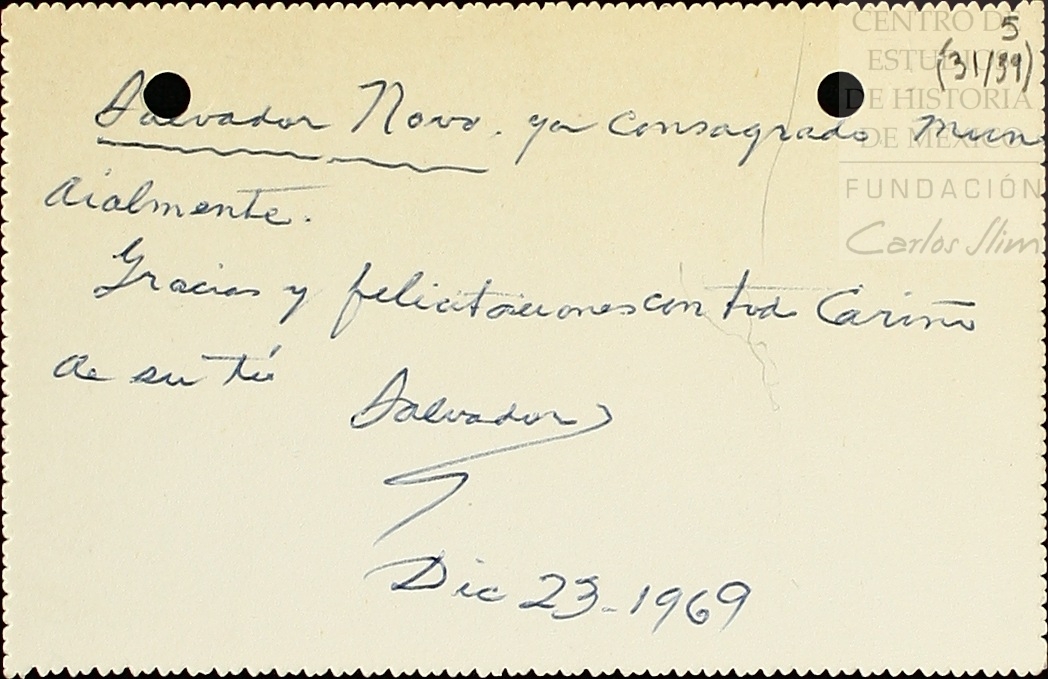 5
(31/39)
Salvador Novo. ya consagrado mun
dialmente.
Gracias y felicitaciones con todo Cariño
de su tío
Salvador
Dic 23-1969
CENTRO DE
ESTUDIOS
DE HISTORIA
DE MÉXICO
FUNDACIÓN
Carlos Slim